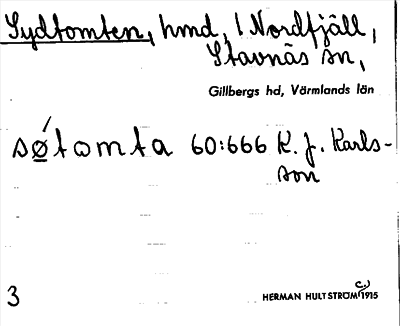 Sydtomten, hmd, 1 Nordfjäll,
Stavnäs sn,
Gillbergs hd, Värmlands län
sǿtomta 60:666 K. J. Karls-
son
3
HERMAN HULTSTRÖM c.) 1915